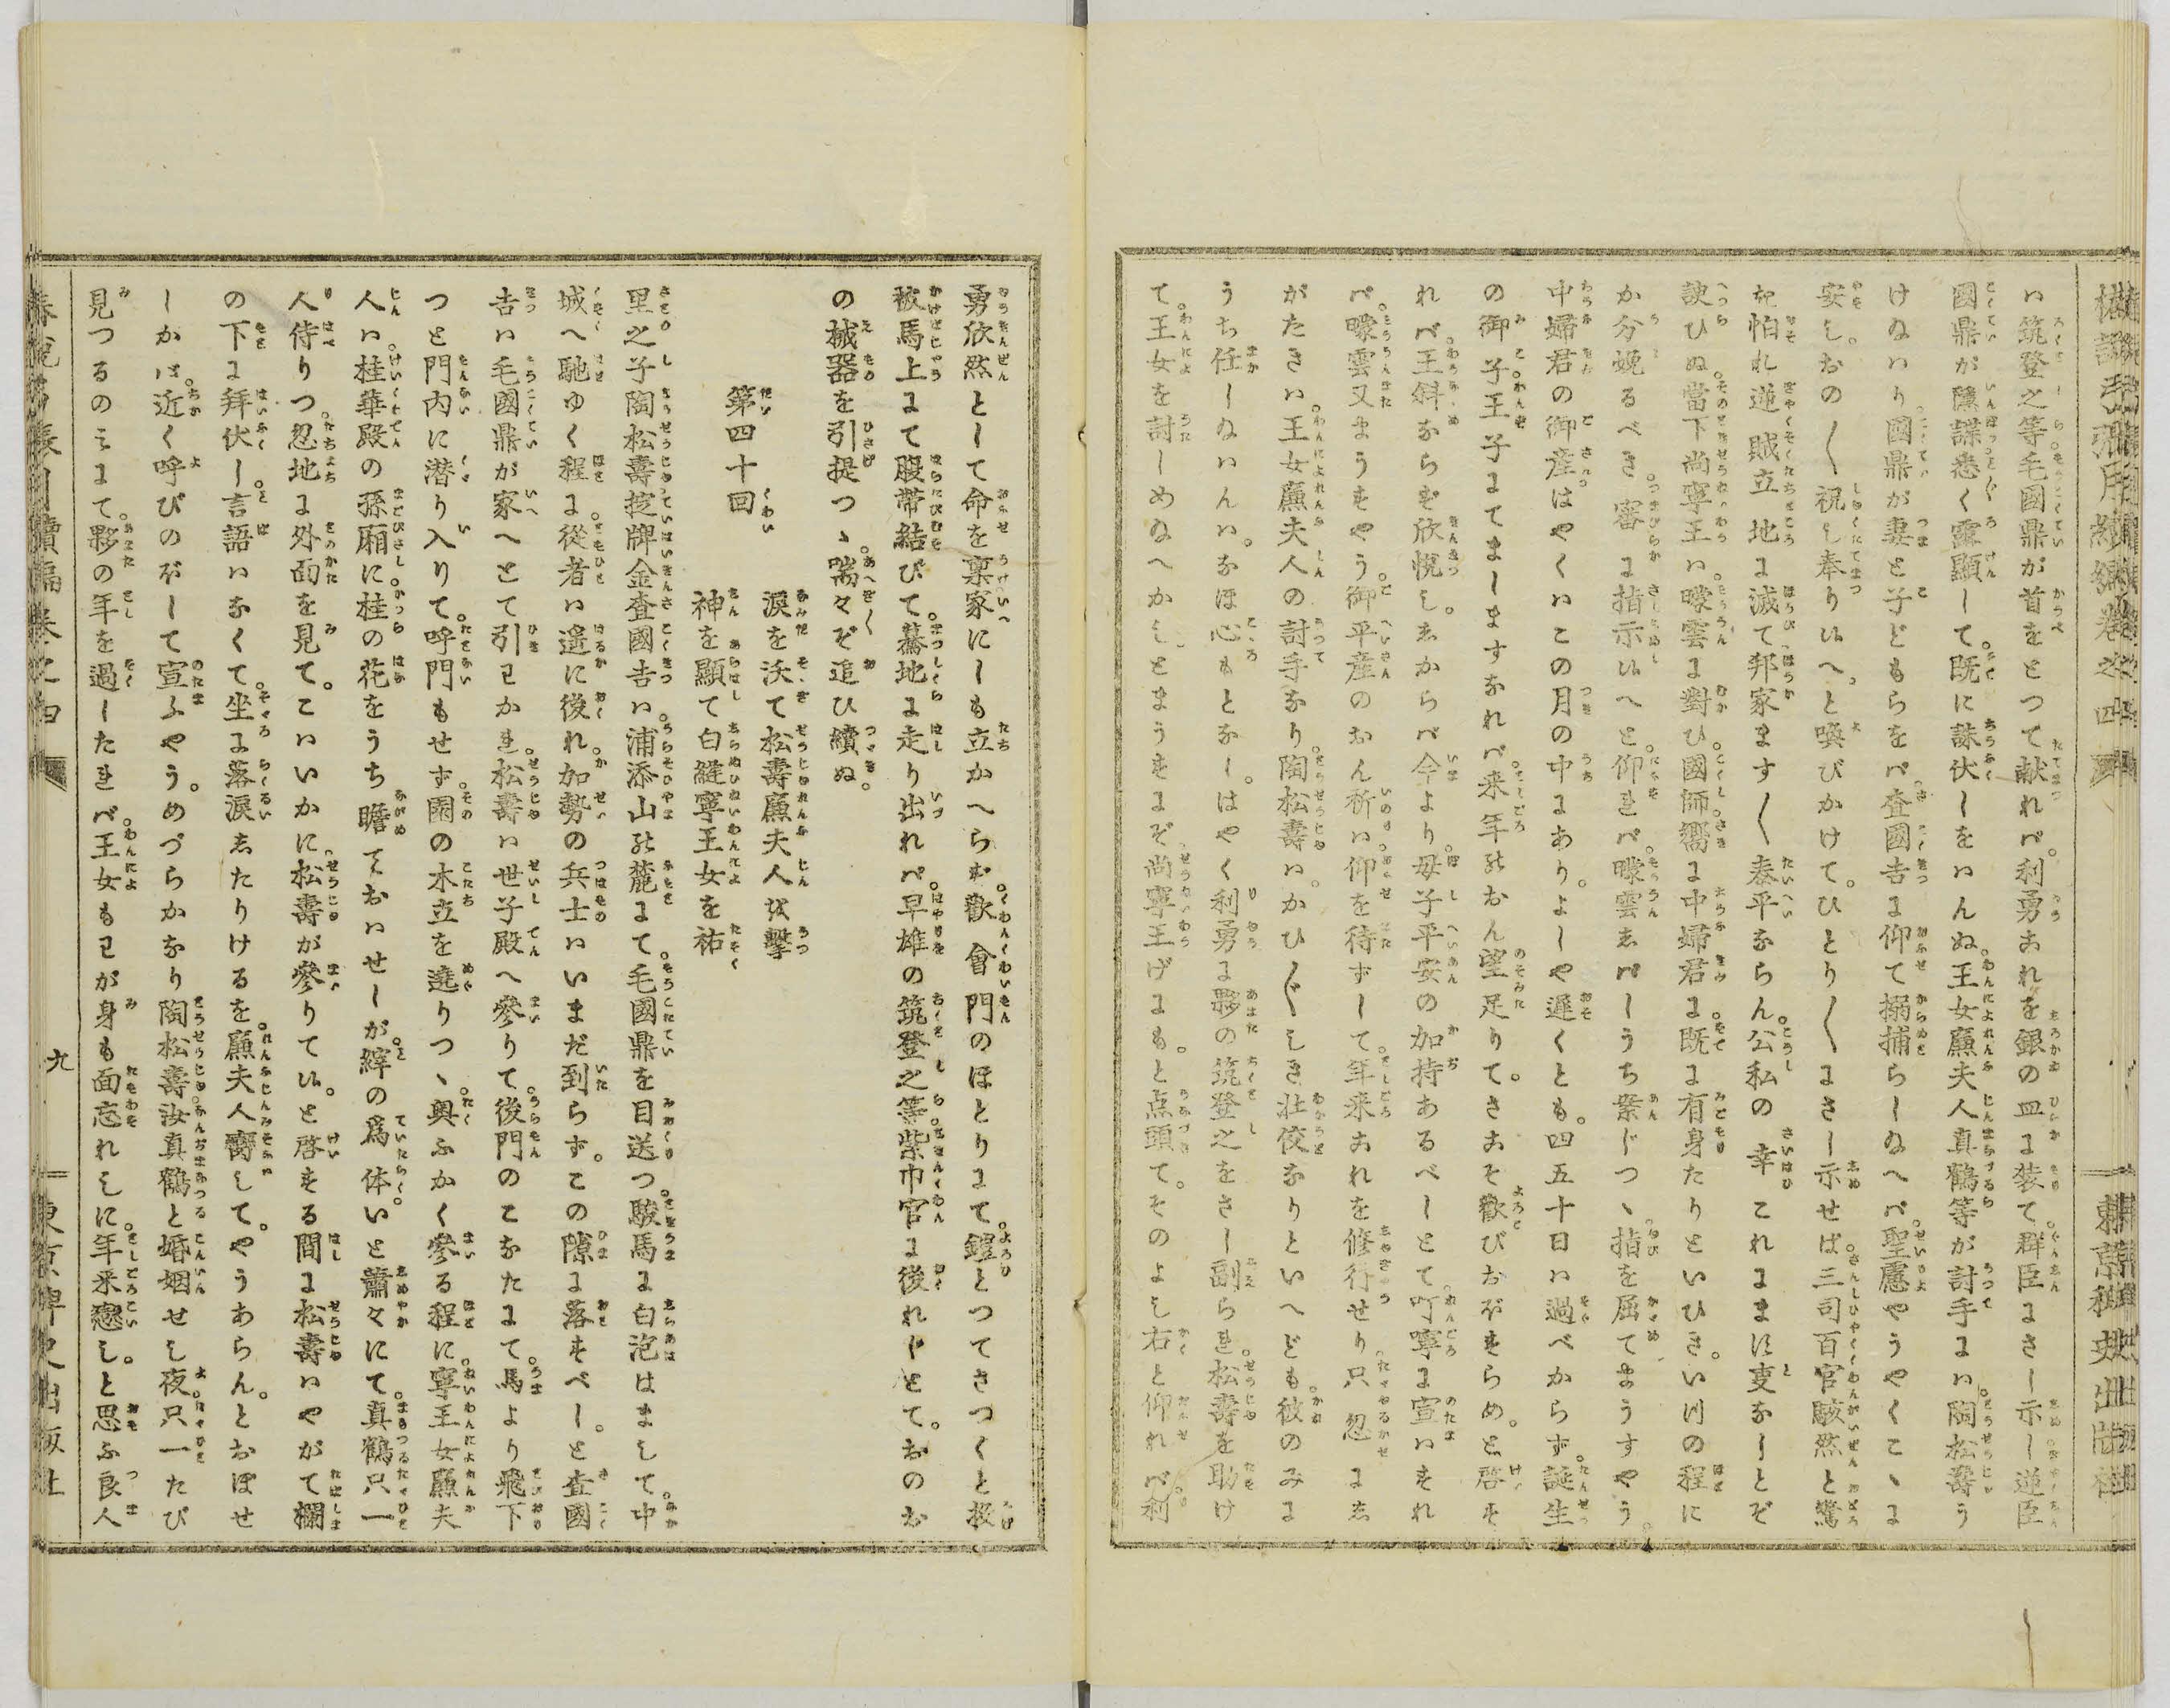 椿説弓張月續編卷之四
東京稗史出版社
い筑登之等毛國鼎が首をとつて献れバ。利勇あれを銀の皿ま装て。群臣まさし示し逆臣
國鼎が隠謀悉く露顯して。既に誅伏しをいんぬ。王女廉夫人真鶴等が討手まハ。陶松壽う
けぬハり國鼎が妻と子どもらをバ。査國吉ま仰て搦捕らしぬへバ。聖慮やうやくこゝま
安し。おの〱祝し奉り玉へ。と喚びかけて。ひとり〱まさし示せば。三司百官駭然と驚
き怕れ逆賊立地ま滅て邦家ます〱泰平ならん。公私の幸これまま泛夏なしとぞ
諛ひぬ。當下尚寧王ハ。曚雲ま對ひ。國師嚮ま中婦君ま既ま有身たりといひき。いつの程に
か分娩るべき。審ま指示玉へと。仰れバ曚雲しバしうち案じつゝ。指を屈てまうすやう。
中婦君の御産はやくハこの月の中まあり。よしや遲くとも。四五十日ハ過べからず。誕生
の御子。王子まてましますなれバ。来年於おん望足りて。さあそ歡びおぼすらめ。と啓す
れバ。王斜ならず欣悦し。しからバ今より母子平安の加持あるべしとて。叮寧ま宣ハすれ
バ。曚雲又まうすやう。御平産のおん祈ハ仰を待ずして。年来あれを修行せり。只忽ませ
がたきハ。王女廉夫人の討手なり。陶松壽ハ。かひ〲しき壮佼なりといへども。彼のみま
うち任しぬハんハ。なほ心もとなし。はやく利勇ま夥の筑登之をさし副られ。松壽を助け
て。王女を討しめぬへかし。とまうすまぞ。尚寧王げまも。と点頭て。そのよし右と仰れバ。利
勇欣然として命を稟家にしも立かへらず。歡會門のほとりまて。鎧とつてさつくと投
被馬上まて腹帶結びて。驀地ま走り出れバ。早雄の筑登之等紫巾官ま後れじとて。おのお
の械器を引提つゝ喘々ぞ追ひ續ぬ。
第四十回
涙を沃て松壽廉夫人を擊
神を顯て白縫寧王女を祐
里之子陶松壽掟牌金査國吉ハ。浦添山於麓まて。毛國鼎を目送つ。駿馬ま白泡はまして。中
城へ馳ゆく程ま。從者ハ遥に後れ。加勢の兵士ハいまだ到らず。この隙ま落すべし。と査國
吉ハ毛國鼎が家へとて引わかれ。松壽ハ世子殿へ參りて。後門のこなたまて。馬より飛下
つと門内に潜り入りて。呼門もせず。園の木立を遶りつゝ。奥ふかく參る程に。寧王女廉夫
人ハ。桂華殿の孫廂に桂の花をうち瞻ておハせしが。縡の爲体。いと蕭々にて。真鶴只一
人侍りつ。忽地ま外面を見て。こハいかに松壽が參りて玉。と啓する間ま松壽ハやがて欄
の下ま拜伏し。言語ハなくて。坐ま落涙したりけるを。廉夫人齋して。やうあらん。とおぼせ
しかバ。近く呼びのぼして宣ふやう。めづらかなり陶松壽。汝真鶴と婚姻せし夜。只一たび
見つるのみまて。夥の年を過したれバ。王女もわが身も面忘れしに。年来戀し。と思ふ良人
春説弓張月續編卷之四
九
東京稗史出版社